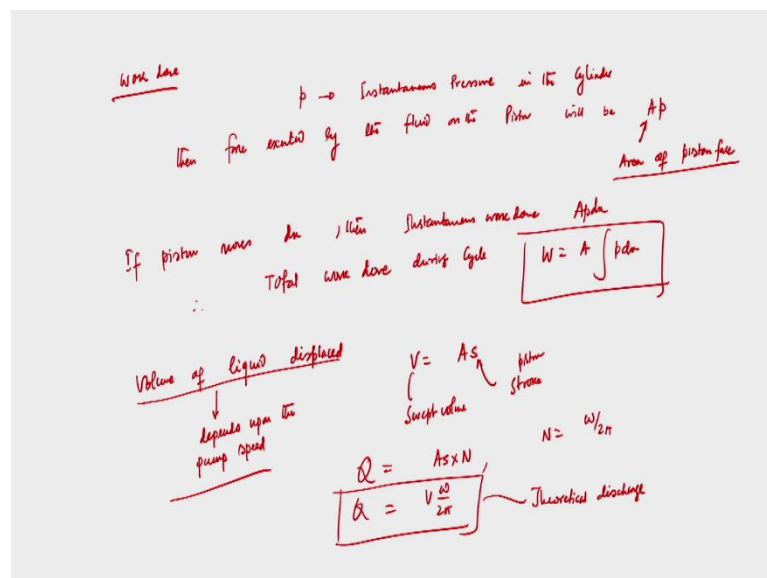 Work done
p → Instantaneous Pressure in the Cylinder
then force exerted by the fluid on the Piston will be Ap
Area of piston face
If piston moves dx, then Instantaneous work done Apdx
∴ Total work done during Cycle W = A ∫ pdx
Volume of liquid displaced
depends upon the pump speed
V = As
Swept volume
piston stroke
N = ω/2π
Q = As×N,
Q = V ω/2π
Theoretical discharge